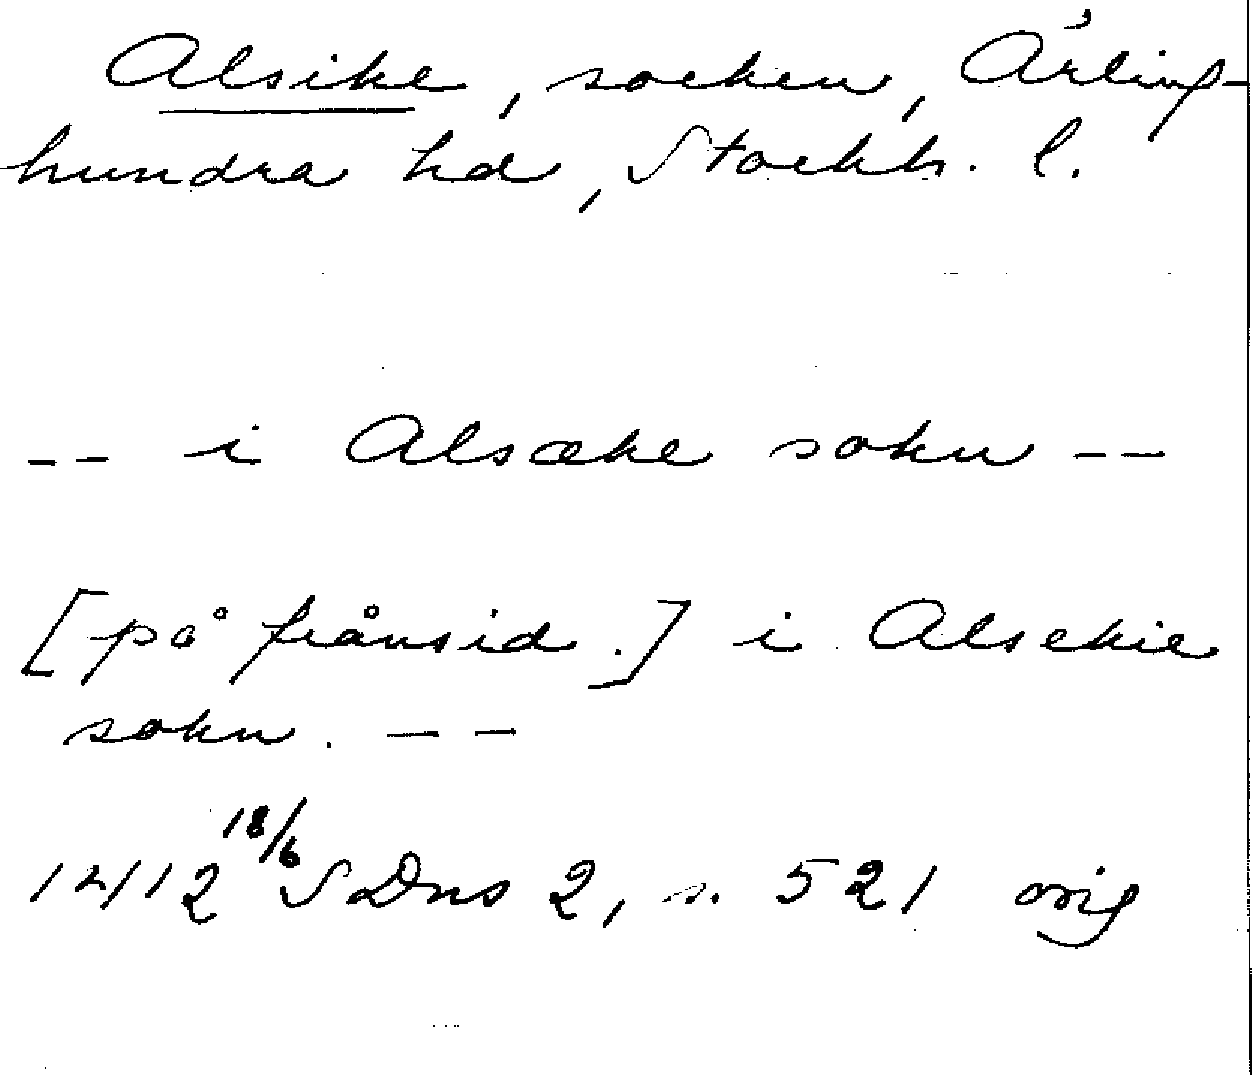 Alsike, socken, Ärling-
hundra hd, Stockh. l.
-- i Alsæke sokn --
[på frånsid.] i Alsekie
sokn. --
1412 18/6 SDns 2, s. 521 orig